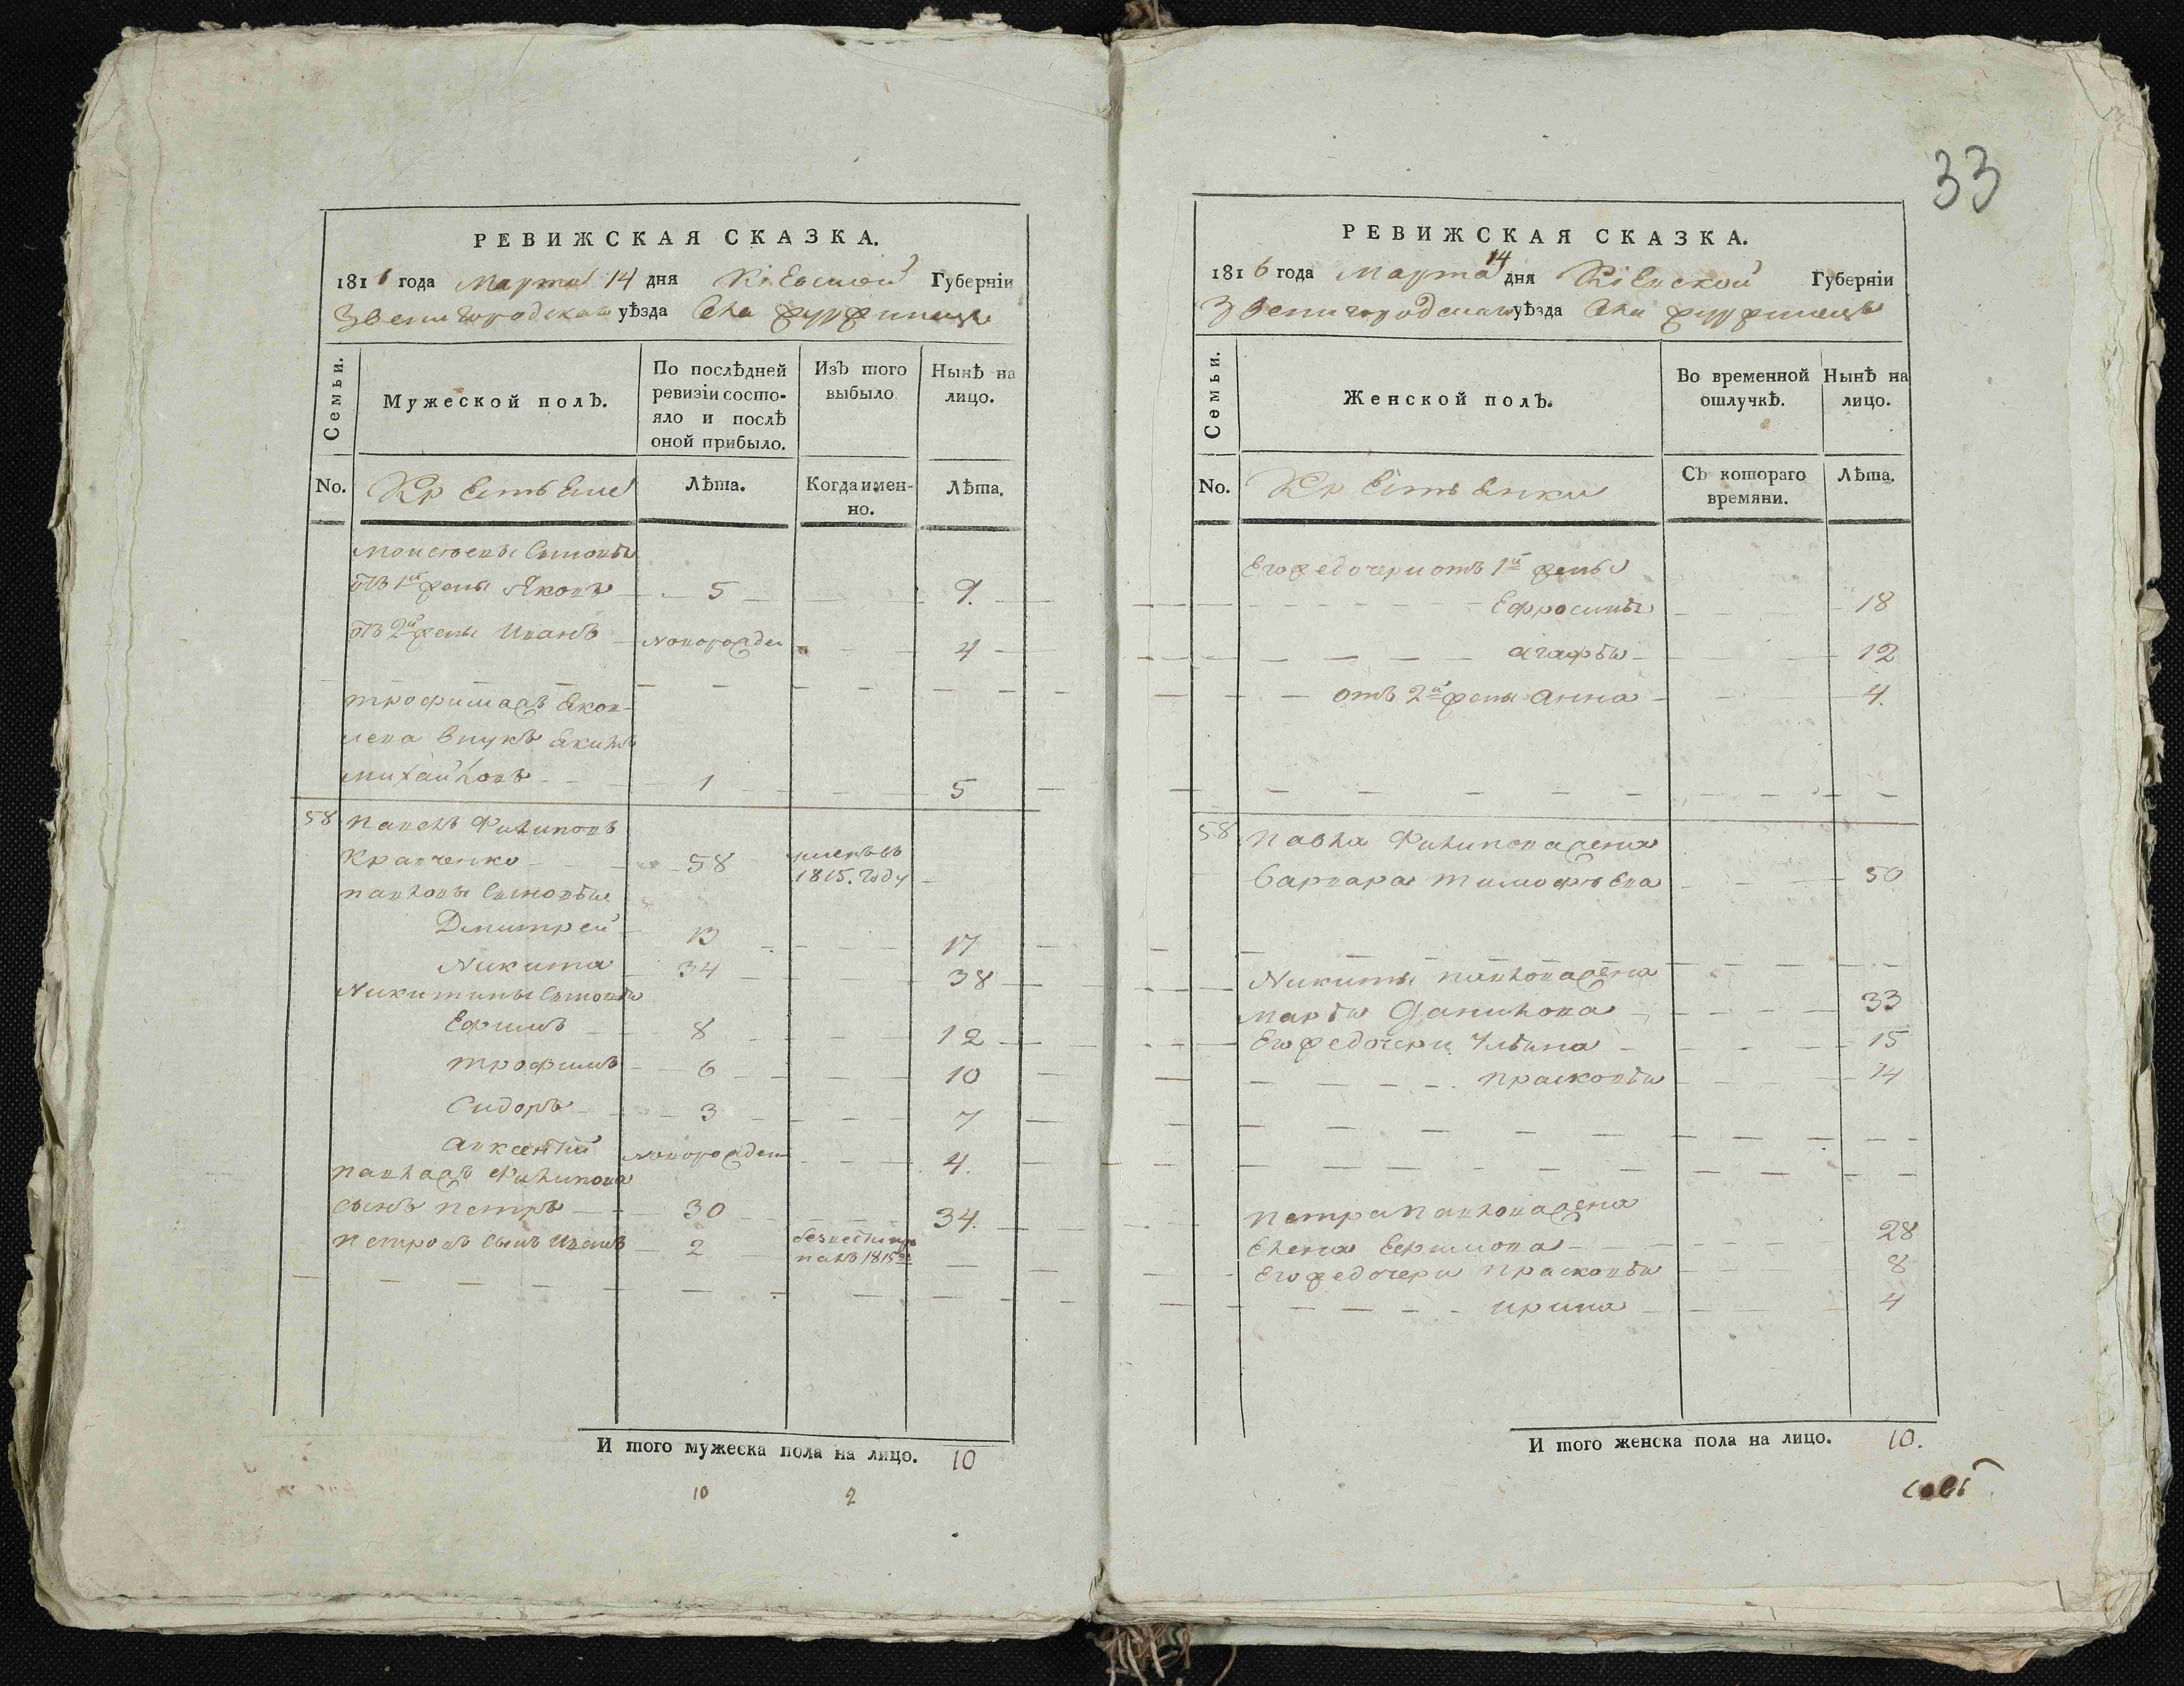 РЕВИЖСКАЯ СКАЗКА.
1816 года Марта 14 дня Кіевской Губерніи
Звенигородскаго уѣзда Села
Семьи.
Мужеской полЪ.
По послѣдней ревизіи состояло и послѣ оной прибыло.
ИзЪ того выбыло
Нынѣ на лицо.
No. Крестьяне Лѣта. Когда именно. Лѣта.
Моисеевы Сыновья
отъ 1й жены Яковъ 5 9.
отъ 2й жены Иванъ Новорожден 4
Трофима Яков-
лева внукъ Екимъ
Михайловъ 1 5
58 Павелъ Филиповъ
Кравченко 58 умеръ въ 1815. Году
Павловы Сыновья
Дмитрей 13 17
Никита 34 38
Никитины Сыновья
Ефимъ 8 12
Трофимъ 6 10
Сидоръ 3 7
Авксентій Новорожден 4.
Павла Филипова
сынъ Петръ 30 34.
Петровъ Сынъ 2 безвестно пропалъ 1815го
И того мужеска пола на лицо. 10
10 2
33
РЕВИЖСКАЯ СКАЗКА.
1816 года Марта 14 дня Кіевской Губерніи
Звенигородскаго уѣзда Села
Семьи.
Женской полЪ.
Во временной отлучкѣ.
Нынѣ на лицо.
No. Крестьянки СЪ котораго времяни. Лѣта.
Егожедочери отъ 1й жены
Ефросинья 18
Агафья 12
отъ 2й жены Анна 4.
58 Павла Филипова жена
Варвара Тимофѣева 50
Никиты Павлова жена
Марья Данилова 33
Егожедочери Ульяна 15
Прасковья 14
Петра Павлова жена
Елена Ефимова 28
Егожедочери Прасковья 8
Ирина 4
И того женска пола на лицо. 10.